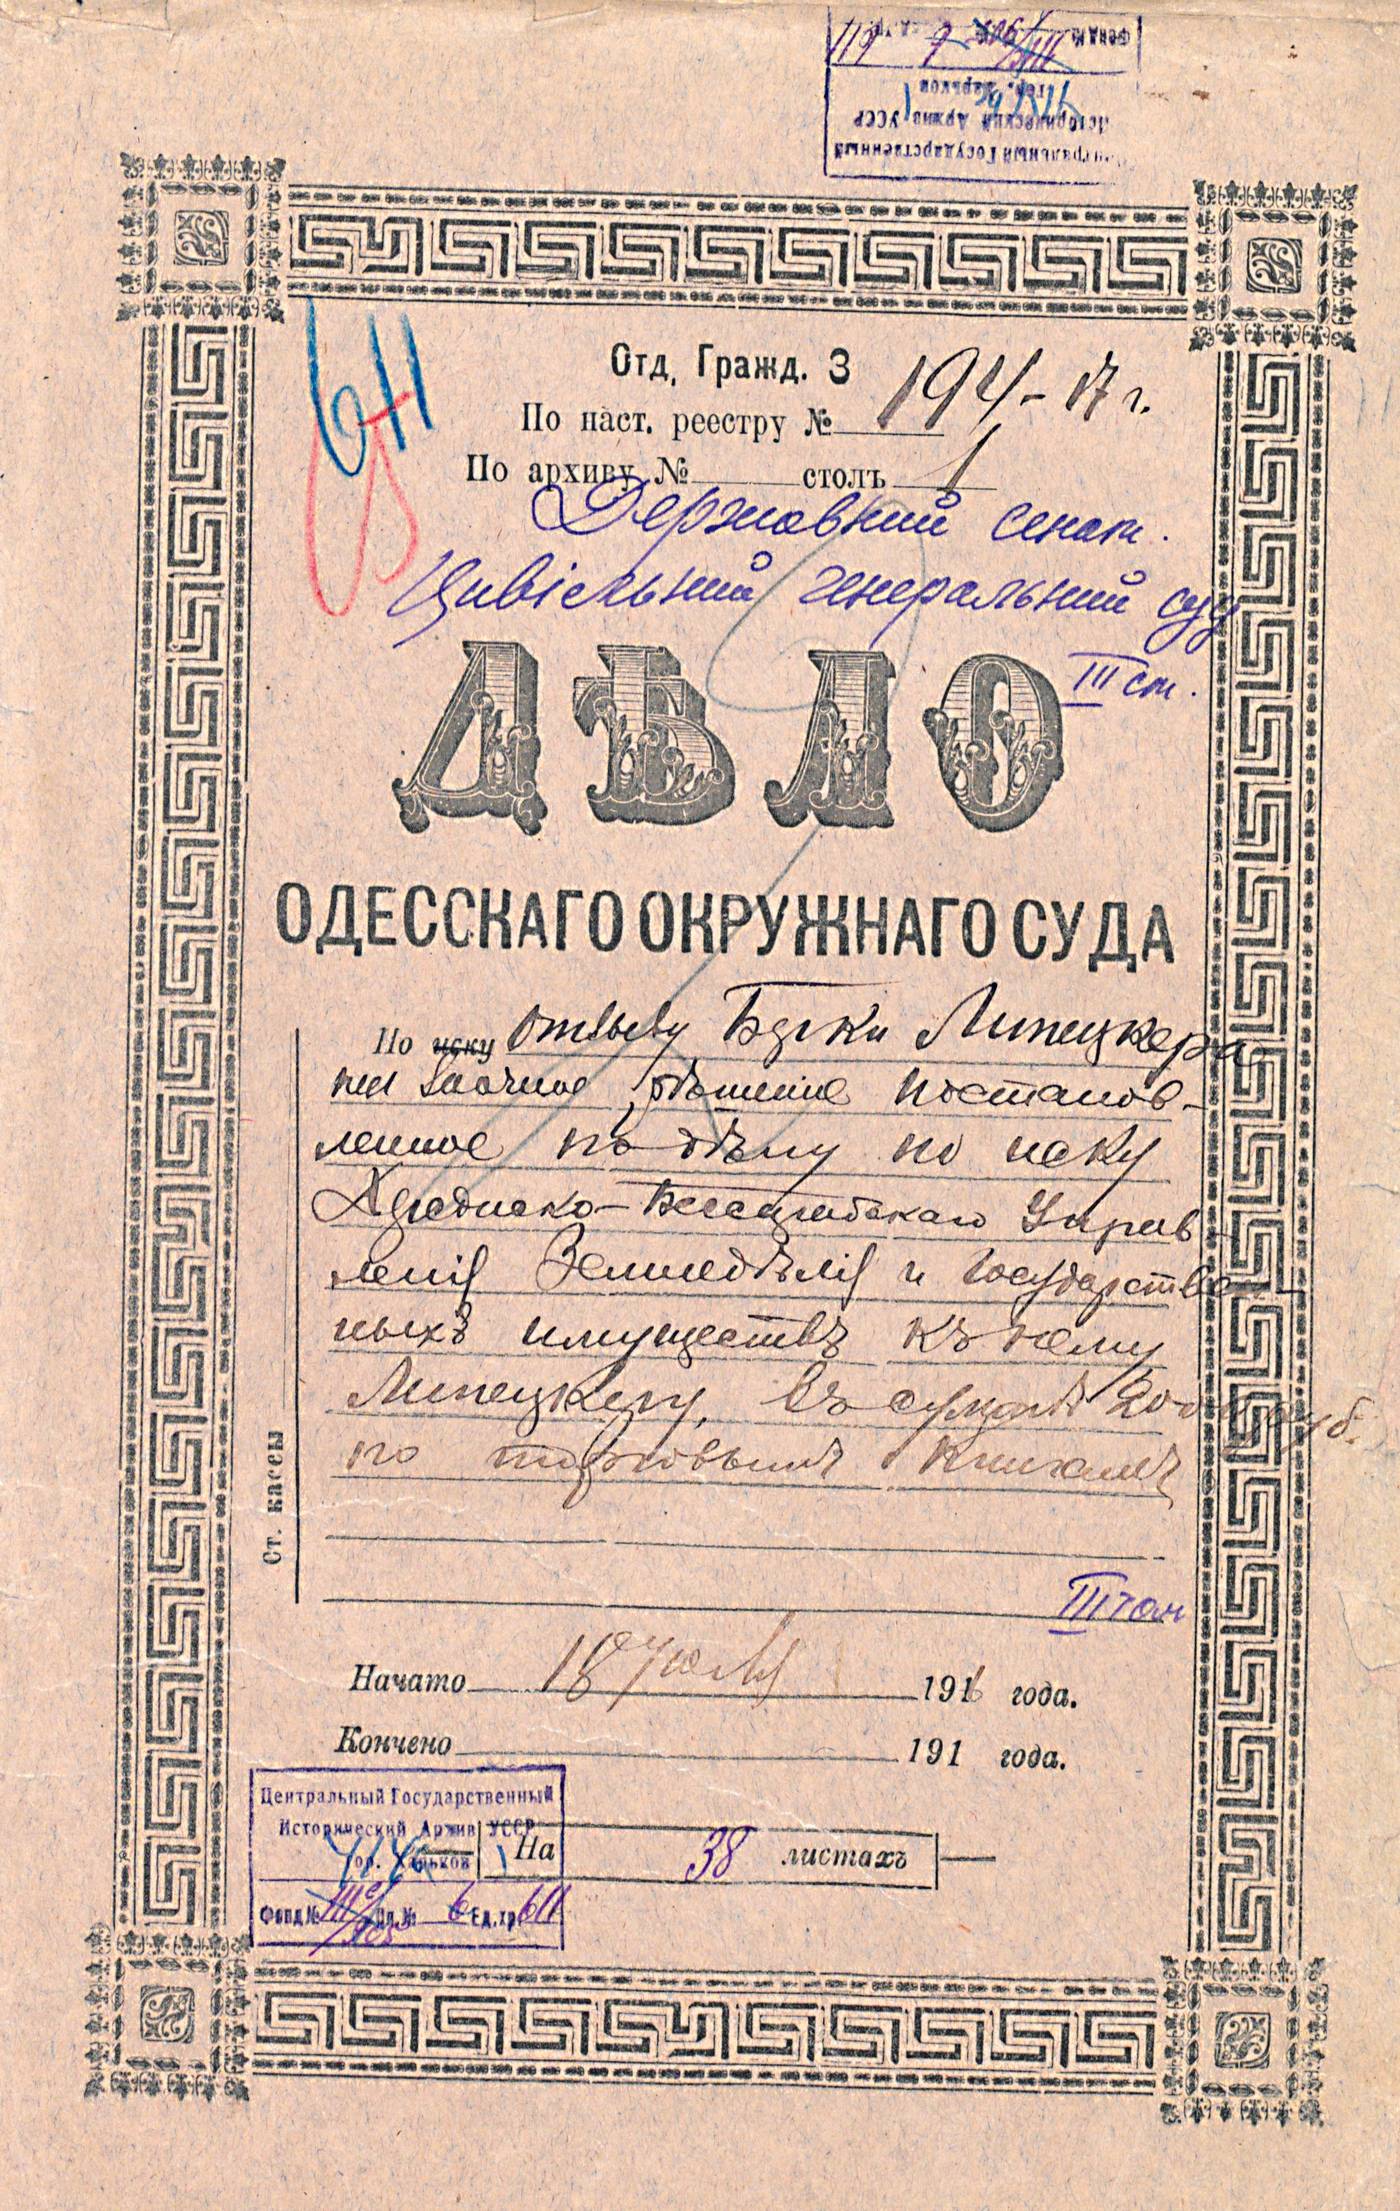 Центральный Государственный
Исторический Архив УССР
гор. Харьков
Фонд №
611
Отд. Гражд. 3
По наст. реестру № 194-17 г.
По архиву № столъ 1
Державний сенат.
Цивільний генеральний суд
III ст.
ДѢЛО
ОДЕССКАГО ОКРУЖНАГО СУДА
По иску отзыву Берки Липецкера
на заочное рѣшеніе постанов-
ленное по дѣлу по иску
Херсонско-Бессарабскаго Управ
ленія Земледѣлія и Государствен-
ныхъ имуществъ къ нему
Липецкеру, въ суммѣ руб.
по торговымъ книгамъ
Ст. кассы
Начато 18 Юля 1916 года.
Кончено 191 года.
Центральный Государственный
Исторический Архив УССР
гор. Харьков
На 38 листахъ
Фонд № Оп. № 6 Ед. хр. 611